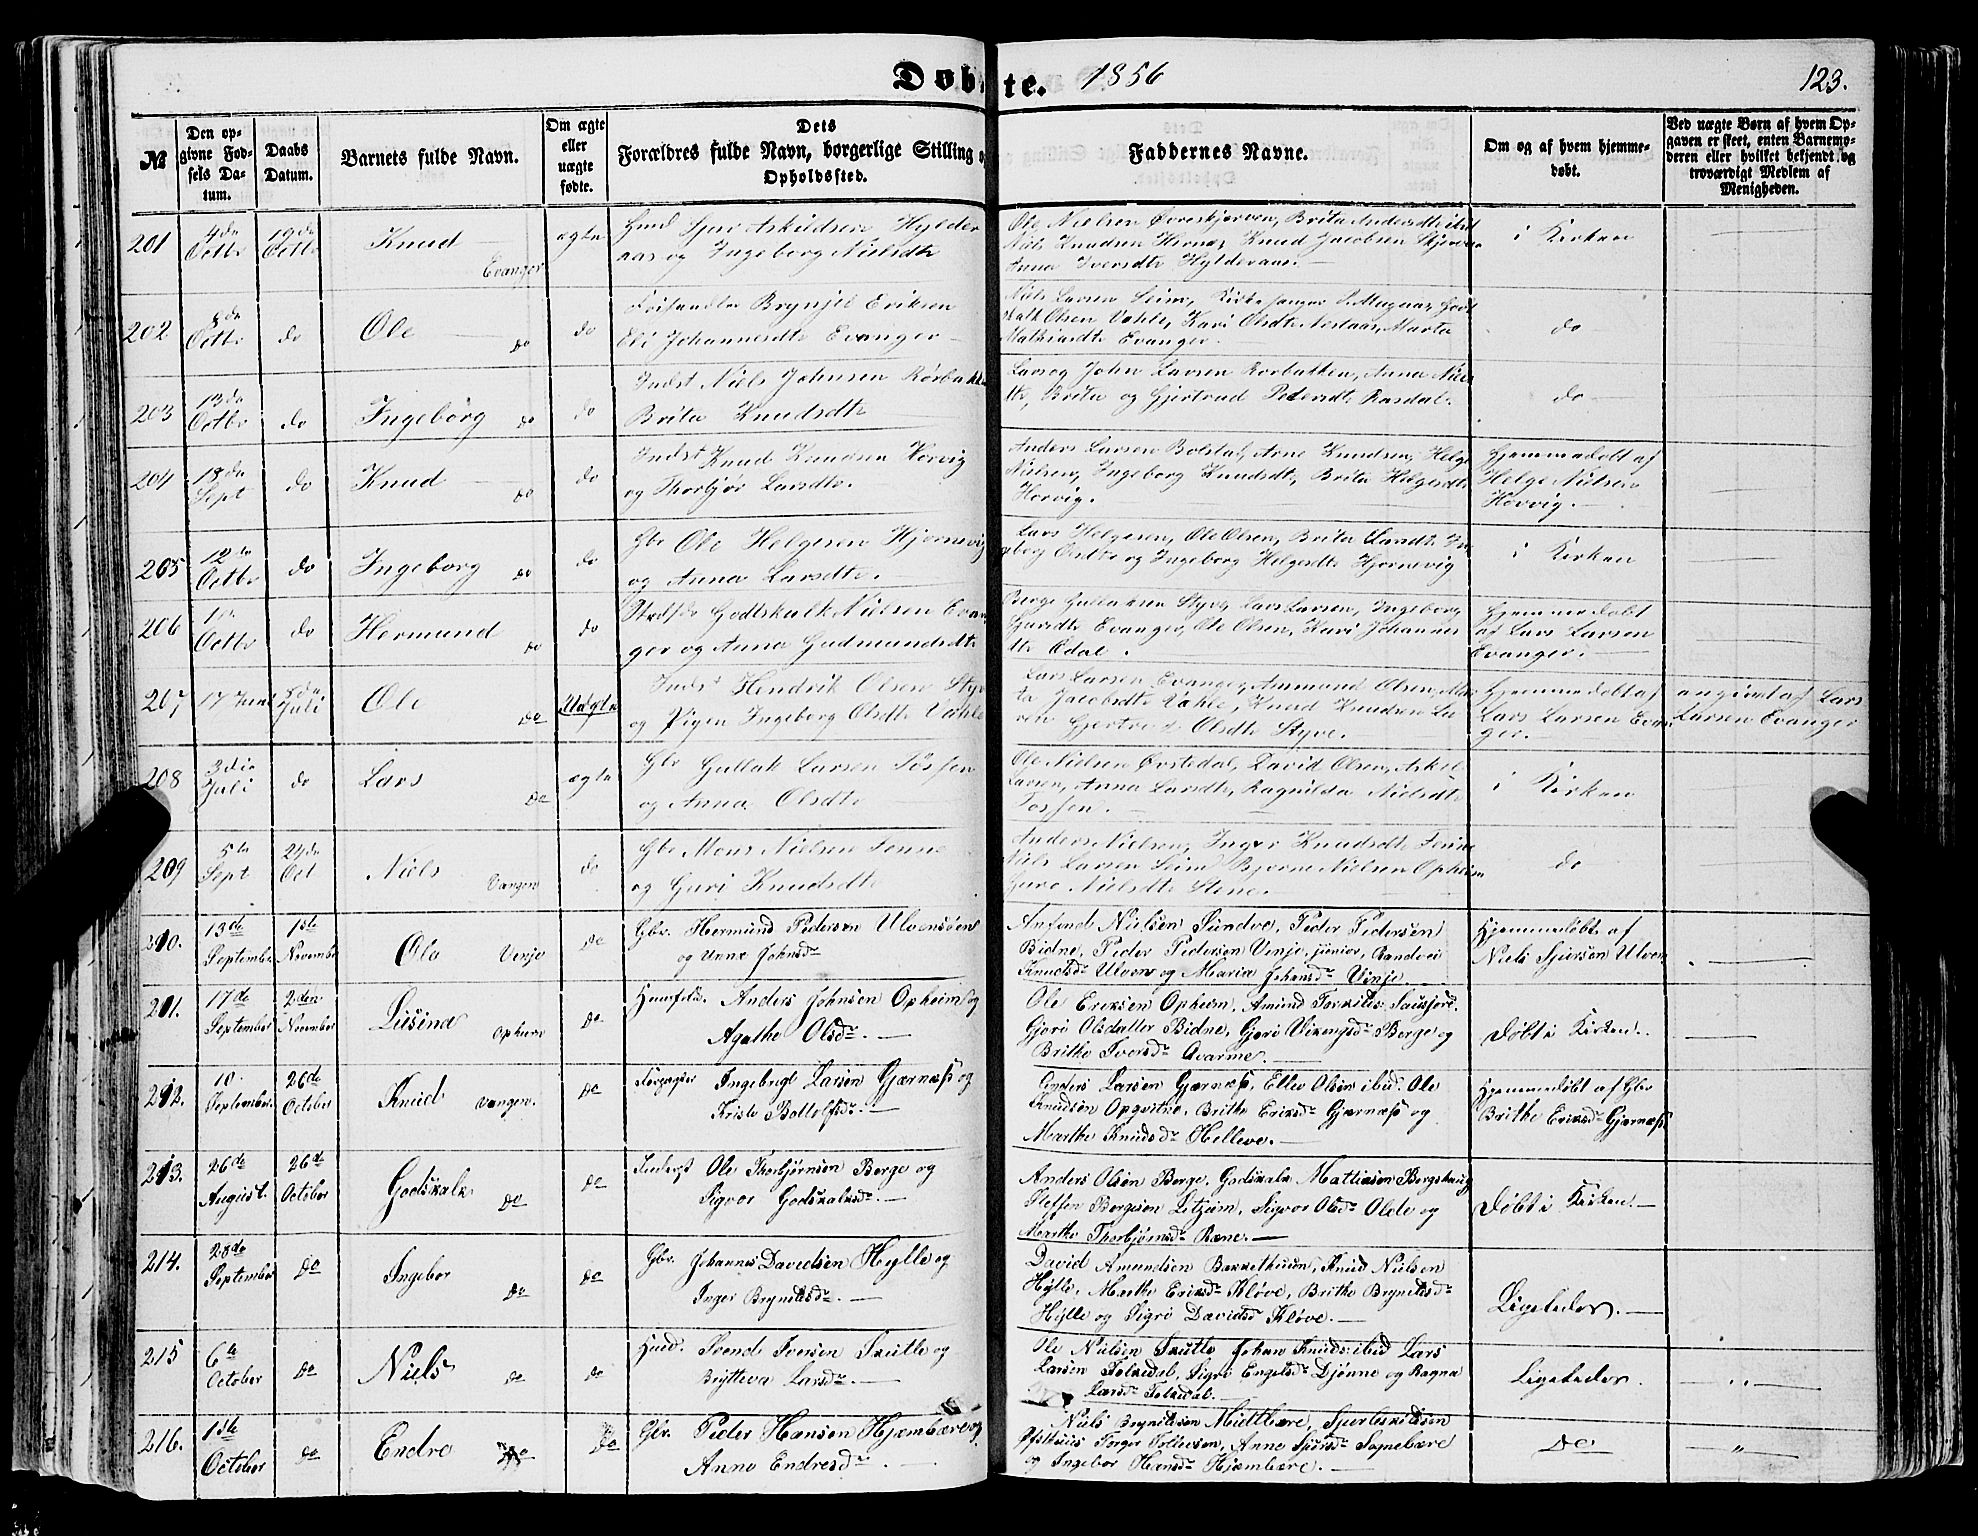 Døbte. 1856
123.
№
Den opgivne Fødsels Datum.
Daabs Datum.
Barnets fulde Navn.
Om ægte eller uægte fødte.
Dets Forældres fulde Navn, borgerlige Stilling og Opholdssted.
Faddernes Navne.
Om og af hvem hjemmedøbt.
Ved uægte Børn af hvem Opgaven er skeet, enten Barnemoderen eller hvilket bekjendt og troværdigt Medlem af Menigheden.
201 4de Octbr 19de Octbr Knud Evanger ægte
Askildsen Hylder
aas og Ingeborg Nielsdtr
Ole Nielsen Øvreskjerven, Brita Andersdtr ibid
Niels Knudsen Hernes, Knud Jacobsen Skjerven
Anna Iversdtr Hylderaas.
i Kirken
202 Octbr do Ole do do
Brynjel Eriksen
Eli Johannesdtr Evanger
Niels Larsen Seim, Kirkesanger
Olsen Vahle, Kari Olsdtr Nestaas, Marta
Mathiasdtr Evanger.
do
203 13de Octbr do Ingebørg do do
Indst Niels Johnsen Rørbakken
Brita Knudsdtr
Lars og John Larsen Rorbakken, Anna Niels
dtr, Brita og Gjertrud Pedersdtr Rasdal.
do
204 18de Sept do Knud do do
Indst Knud Knudsen Horvig
og Thorbjør Larsdtr.
Anders Larsen Bolstad, Arne Knudsen, Helge
Nielsen, Ingeborg Knudsdtr, Brita Helgesdtr
Horvig.
Hjemmedøbt af
Helge Nielsen
Horvig.
205 12te Octbr do Ingeborg do do
Gbr Ole Helgesen Hjørnevig
og Anna Larsdtr.
Lars Helgesen, Ole Olsen, Brita Larsdtr In
geborg Olsdtr og Ingeborg Helgesdtr Hjørnevig
i Kirken
206 Octbr do Hermund do do
Godtskalk Nielsen Evan
ger og Anna Gudmundsdtr
Berge Gullaksen Styve, Lars Larsen, Ingeborg
Evanger, Ole Olsen, Kari Johannes
dtr Ødal.
Hjemmedøbt
af Lars Larsen
Evanger.
207 17 Juni Juli Ole do Uægte
Indst Hendrik Olsen Styve
og Pigen Ingeborg Olsdtr Vahle
Lars Larsen Evanger, Aamund Olsen, Mar
ta Jacobsdtr Vahle, Knud Knudsen
Gjertrud Olsdtr Styve.
Hjemmedøbt af
Lars Larsen Evan
ger.
angivet af Lars
Larsen Evanger
208 3die Juli do Lars do ægte
Gbr Gullak Larsen Fosse
og Anna Olsdtr
Ole Nielsen Ørstedal, David Olsen, Askil
Larsen, Anna Larsdtr, Ragnilda Nielsdtr
i Kirken
209 5te Sept 24de Oct Niels Vangen do
Gbr Mons Nielsen Fenne
og Guri Knudsdtr
Anders Nielsen, Inger Knudsdtr Fenne
Niels Larsen Seim, Bjørne Nielsen Opheim
Guro Nielsdtr Stene.
do
210. 13de September 1ste November Ole Vinje do
Gbr. Hermund Pedersen Ulvensøen
og Unna Johnsdr
Anfend Nielsen Sundve, Peder Pedersen
Bidne, Peder Pedersen Vinje, junior, Randvei
Knudsdr Ulven og Maria Johansdr Vinje.
Hjemmedøbt af
Niels Sjursen Ulven
211. 17de September 2den November Lusina Opheim do
Huusfolk. Anders Johnsen Opheim og
Agathe Olsdr.
Ole Eriksen Opheim, Amund Torkilds: Saufjord.
Gjøri Olsdatter Bidne, Gjøri Vikingsdr Berge og
Brithe Iversdr Qvarme.
Døbt i Kirken.
212. 10. September 26de October Knud Vangen. do
Ingebrigt Larsen Gjærnæss og
Kristi Bottolfsdr.
Anders Larsen Gjærnæss, Ellev Olsen ibid. Ole
Knudsen Opqvitne, Brithe Eriksdr Gjærnæss og
Marthe Knudsdr Helleve.
Hjemmedøbt af Gbr
Brithe Eriksdr Gjærnæss
213. 26de August. 26de October Godskalk do do
Inderst Ole Thorbjørnsen Berge og
Sigvor Godskalksdr.
Anders Olsen Berge, Godskalk Mathiesen Bergshaug
Steffen Bergesen Litzum, Sigvor Olsdr Olde og
Marthe Thorbjørnsdr Rene.
Døbt i Kirken.
214. 28de September do Ingebor do do
Gbr. Johannes Davidsen Hylle og
Inger Brynildsdr.
David Amundsen Bakkethuun, Knud Nielsen
Hylle, Marthe Eriksdr Kløve, Brithe Brynildsdr
Hylle og Sigri Davidsdr Kløve.
Ligeledes.
215 6te October do Niels do do
Huusm. Svend Iversen Skutle og
Brytteva Larsdr.
Ole Nielsen Skutle Johan Knuds: ibid Lars
Larsen Folkedal, Sigri Engelsdr Djønne og Ragna
Larsdr Folkedal.
Ligeledes.
216. 1ste October do Endre do do
Gbr. Peder Hansen Hjæmbære og
Anna Endresdr
Niels Brynildsen Midtbære, Sjur Eskildsen
Ofsthuus Torger Tollevsen, Anna Sjursdr Sognebære
og Ingebor Hansdr Hjæmbære.
do